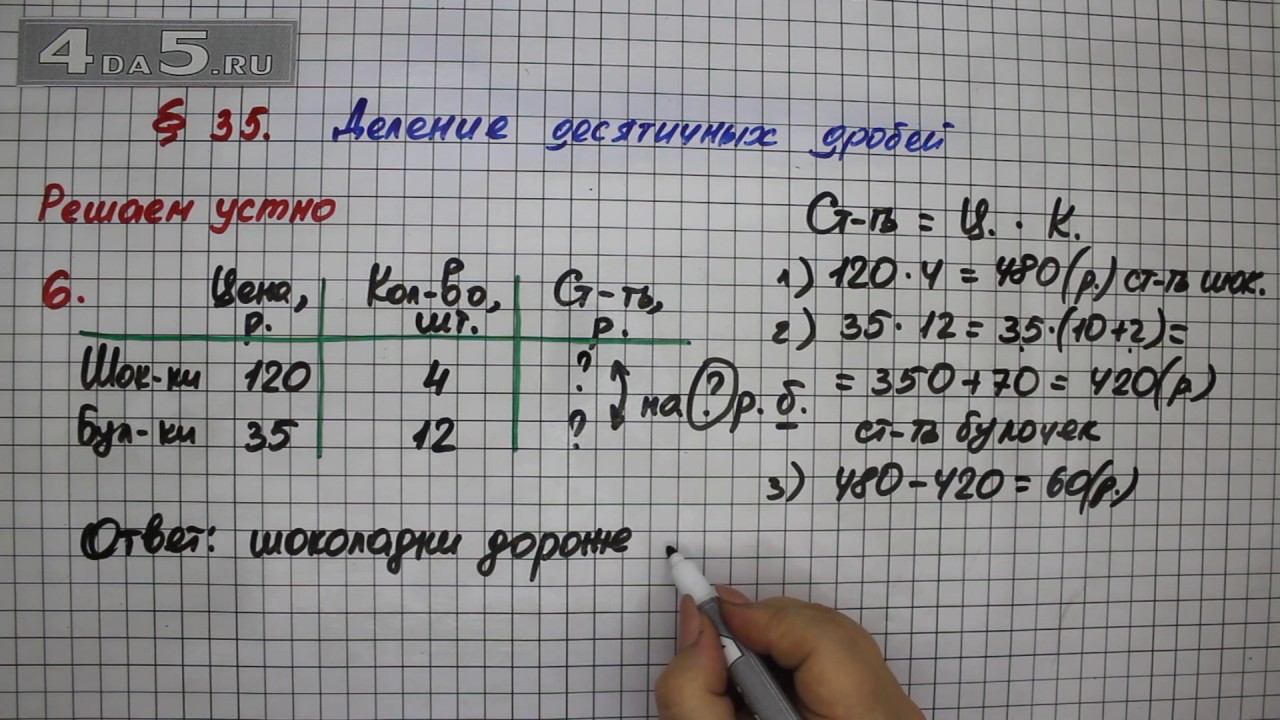 4DA5.RU
§ 35. Деление десятичных дробей
Решаем устно
6. Цена, р. Кол-во, шт. Ст-ть, р.
Шок-ки 120 4 ?
Бул-ки 35 12 ?
на ? р. б.
Ст-ть = Ц. · К.
1) 120 · 4 = 480 (р.) ст-ть шок.
2) 35 · 12 = 35 · (10 + 2) =
= 350 + 70 = 420 (р)
ст-ть булочек
3) 480 - 420 = 60 (р.)
Ответ: шоколадки дороже